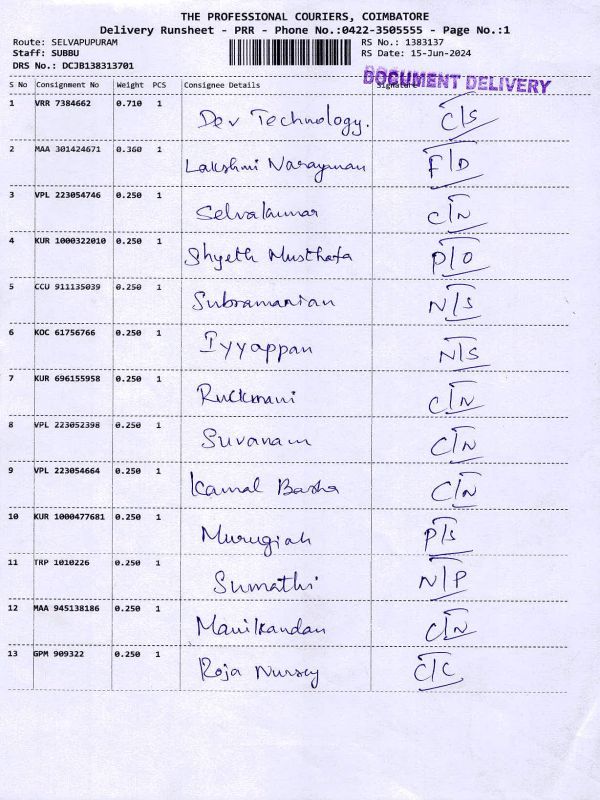 THE PROFESSIONAL COURIERS, COIMBATORE
Delivery Runsheet - PRR - Phone No.:0422-3505555 - Page No.:1
Route: SELVAPUPURAM RS No.: 1383137
Staff: SUBBU RS Date: 15-Jun-2024
DRS No.: DCJB138313701
DOCUMENT DELIVERY
S No Consignment No Weight PCS Consignee Details Signature
1 VRR 7384662 0.710 1 Dev Technology. C/S
2 MAA 301424671 0.360 1 Lakshmi Narayanan F/D
3 VPL 223054746 0.250 1 Selvakumar C/N
4 KUR 1000322010 0.250 1 Shyeth Musthafa P/O
5 CCU 911135039 0.250 1 Subramanian N/S
6 KOC 61756766 0.250 1 Iyyappan N/S
7 KUR 696155958 0.250 1 Ruckmani C/N
8 VPL 223052398 0.250 1 Suvanam C/N
9 VPL 223054664 0.250 1 Kamal Basha C/N
10 KUR 1000477681 0.250 1 Murugiah P/S
11 TRP 1010226 0.250 1 Sumathi N/P
12 MAA 945138186 0.250 1 Manikandan C/N
13 GPM 909322 0.250 1 Roja Nursey C/C